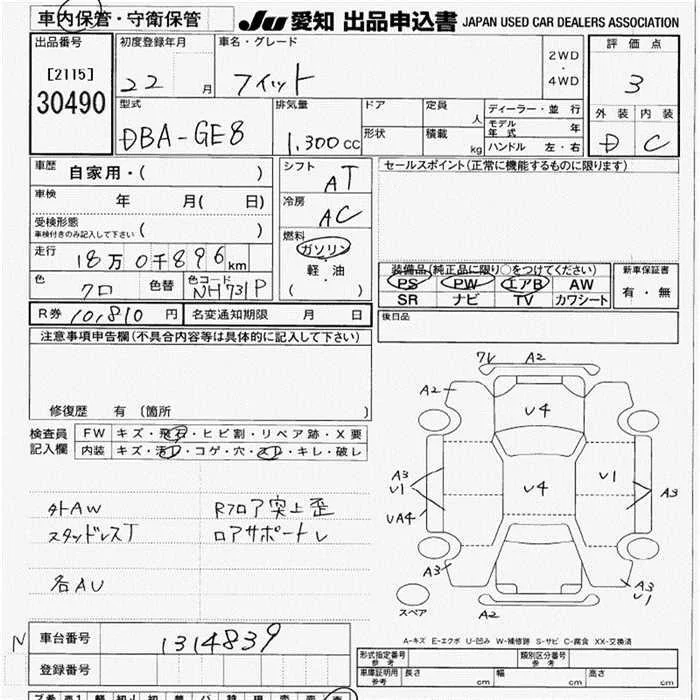 車内保管・守衛保管
JU 愛知 出品申込書 JAPAN USED CAR DEALERS ASSOCIATION
出品番号 初度登録年月 車名・グレード 2WD ・ 4WD 評価点
[2115] 22 月 フィット 3
30490 型式 排気量 ドア 定員 人 ディーラー・並行 外装 内装
DBA-GE8 1,300cc 形状 積載 kg モデル年式 年 D C
ハンドル 左・右
車歴 自家用・( ) シフト AT セールスポイント(正常に機能するものに限ります)
車検 年 月( 日) 冷房 AC
受検形態 ( )
車検付きのみ記入して下さい
燃料 ガソリン・軽油 ( )
走行 18万0千896km 装備品(純正品に限り○をつけてください) 新車保証書
色 クロ 色替 色コード NH731P PS PW エアB AW 有・無
SR ナビ TV カワシート
R券 10,810円 名変通知期限 月 日 後日品
注意事項申告欄(不具合内容等は具体的に記入して下さい)
修復歴 有 (箇所 )
検査員 FW キズ・飛石・ヒビ割・リペア跡・X要
記入欄 内装 キズ・汚レ・コゲ・穴・スレ・キレ・破レ
7レ A2
A2
U4
A3
U1 U4 U1 A3
UA4
A3 A3
U1
スペア A2
外AW Rフロア突上歪
スタッドレスT ロアサポートレ
各AU
A-キズ E-エクボ U-凹み W-補修跡 S-サビ C-腐食 XX-交換済
N 車台番号 1314839
登録番号
形式指定番号 参考 類別区分番号 参考
車庫証明用 参考 長さ cm 幅 cm 高さ cm